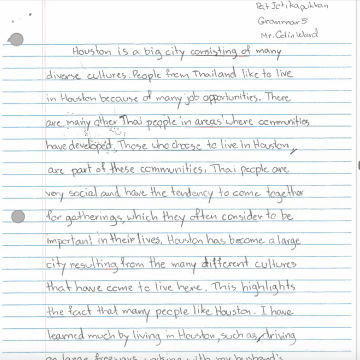 Grammar 5
Mr. Colin Ward
Houston is a big city consisting of many
diverse cultures. People from Thailand like to live
in Houston because of many job opportunities. There
are many other Thai people in areas where communities
have developed. Those who choose to live in Houston,
are part of these communities. Thai people are
very social and have the tendency to come together
for gatherings, which they often consider to be
important in their lives. Houston has become a large
city resulting from the many different cultures
that have come to live here. This highlights
the fact that many people like Houston. I have
learned much by living in Houston, such as, driving
on large freeways, working with my husband's